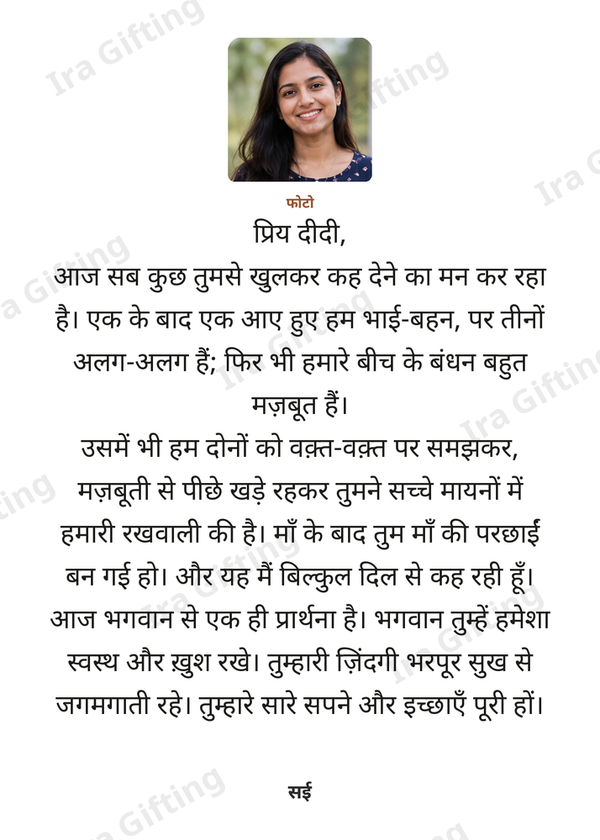 फोटो
प्रिय दीदी,
आज सब कुछ तुमसे खुलकर कह देने का मन कर रहा
है। एक के बाद एक आए हुए हम भाई-बहन, पर तीनों
अलग-अलग हैं; फिर भी हमारे बीच के बंधन बहुत
मज़बूत हैं।
उसमें भी हम दोनों को वक़्त-वक़्त पर समझकर,
मज़बूती से पीछे खड़े रहकर तुमने सच्चे मायनों में
हमारी रखवाली की है। माँ के बाद तुम माँ की परछाईं
बन गई हो। और यह मैं बिल्कुल दिल से कह रही हूँ।
आज भगवान से एक ही प्रार्थना है। भगवान तुम्हें हमेशा
स्वस्थ और ख़ुश रखे। तुम्हारी ज़िंदगी भरपूर सुख से
जगमगाती रहे। तुम्हारे सारे सपने और इच्छाएँ पूरी हों।
सई
Ira Gifting
Ira Gifting
Ira Gifting
Ira Gifting
Ira Gifting
Ira Gifting
Ira Gifting
Ira Gifting
Ira Gifting